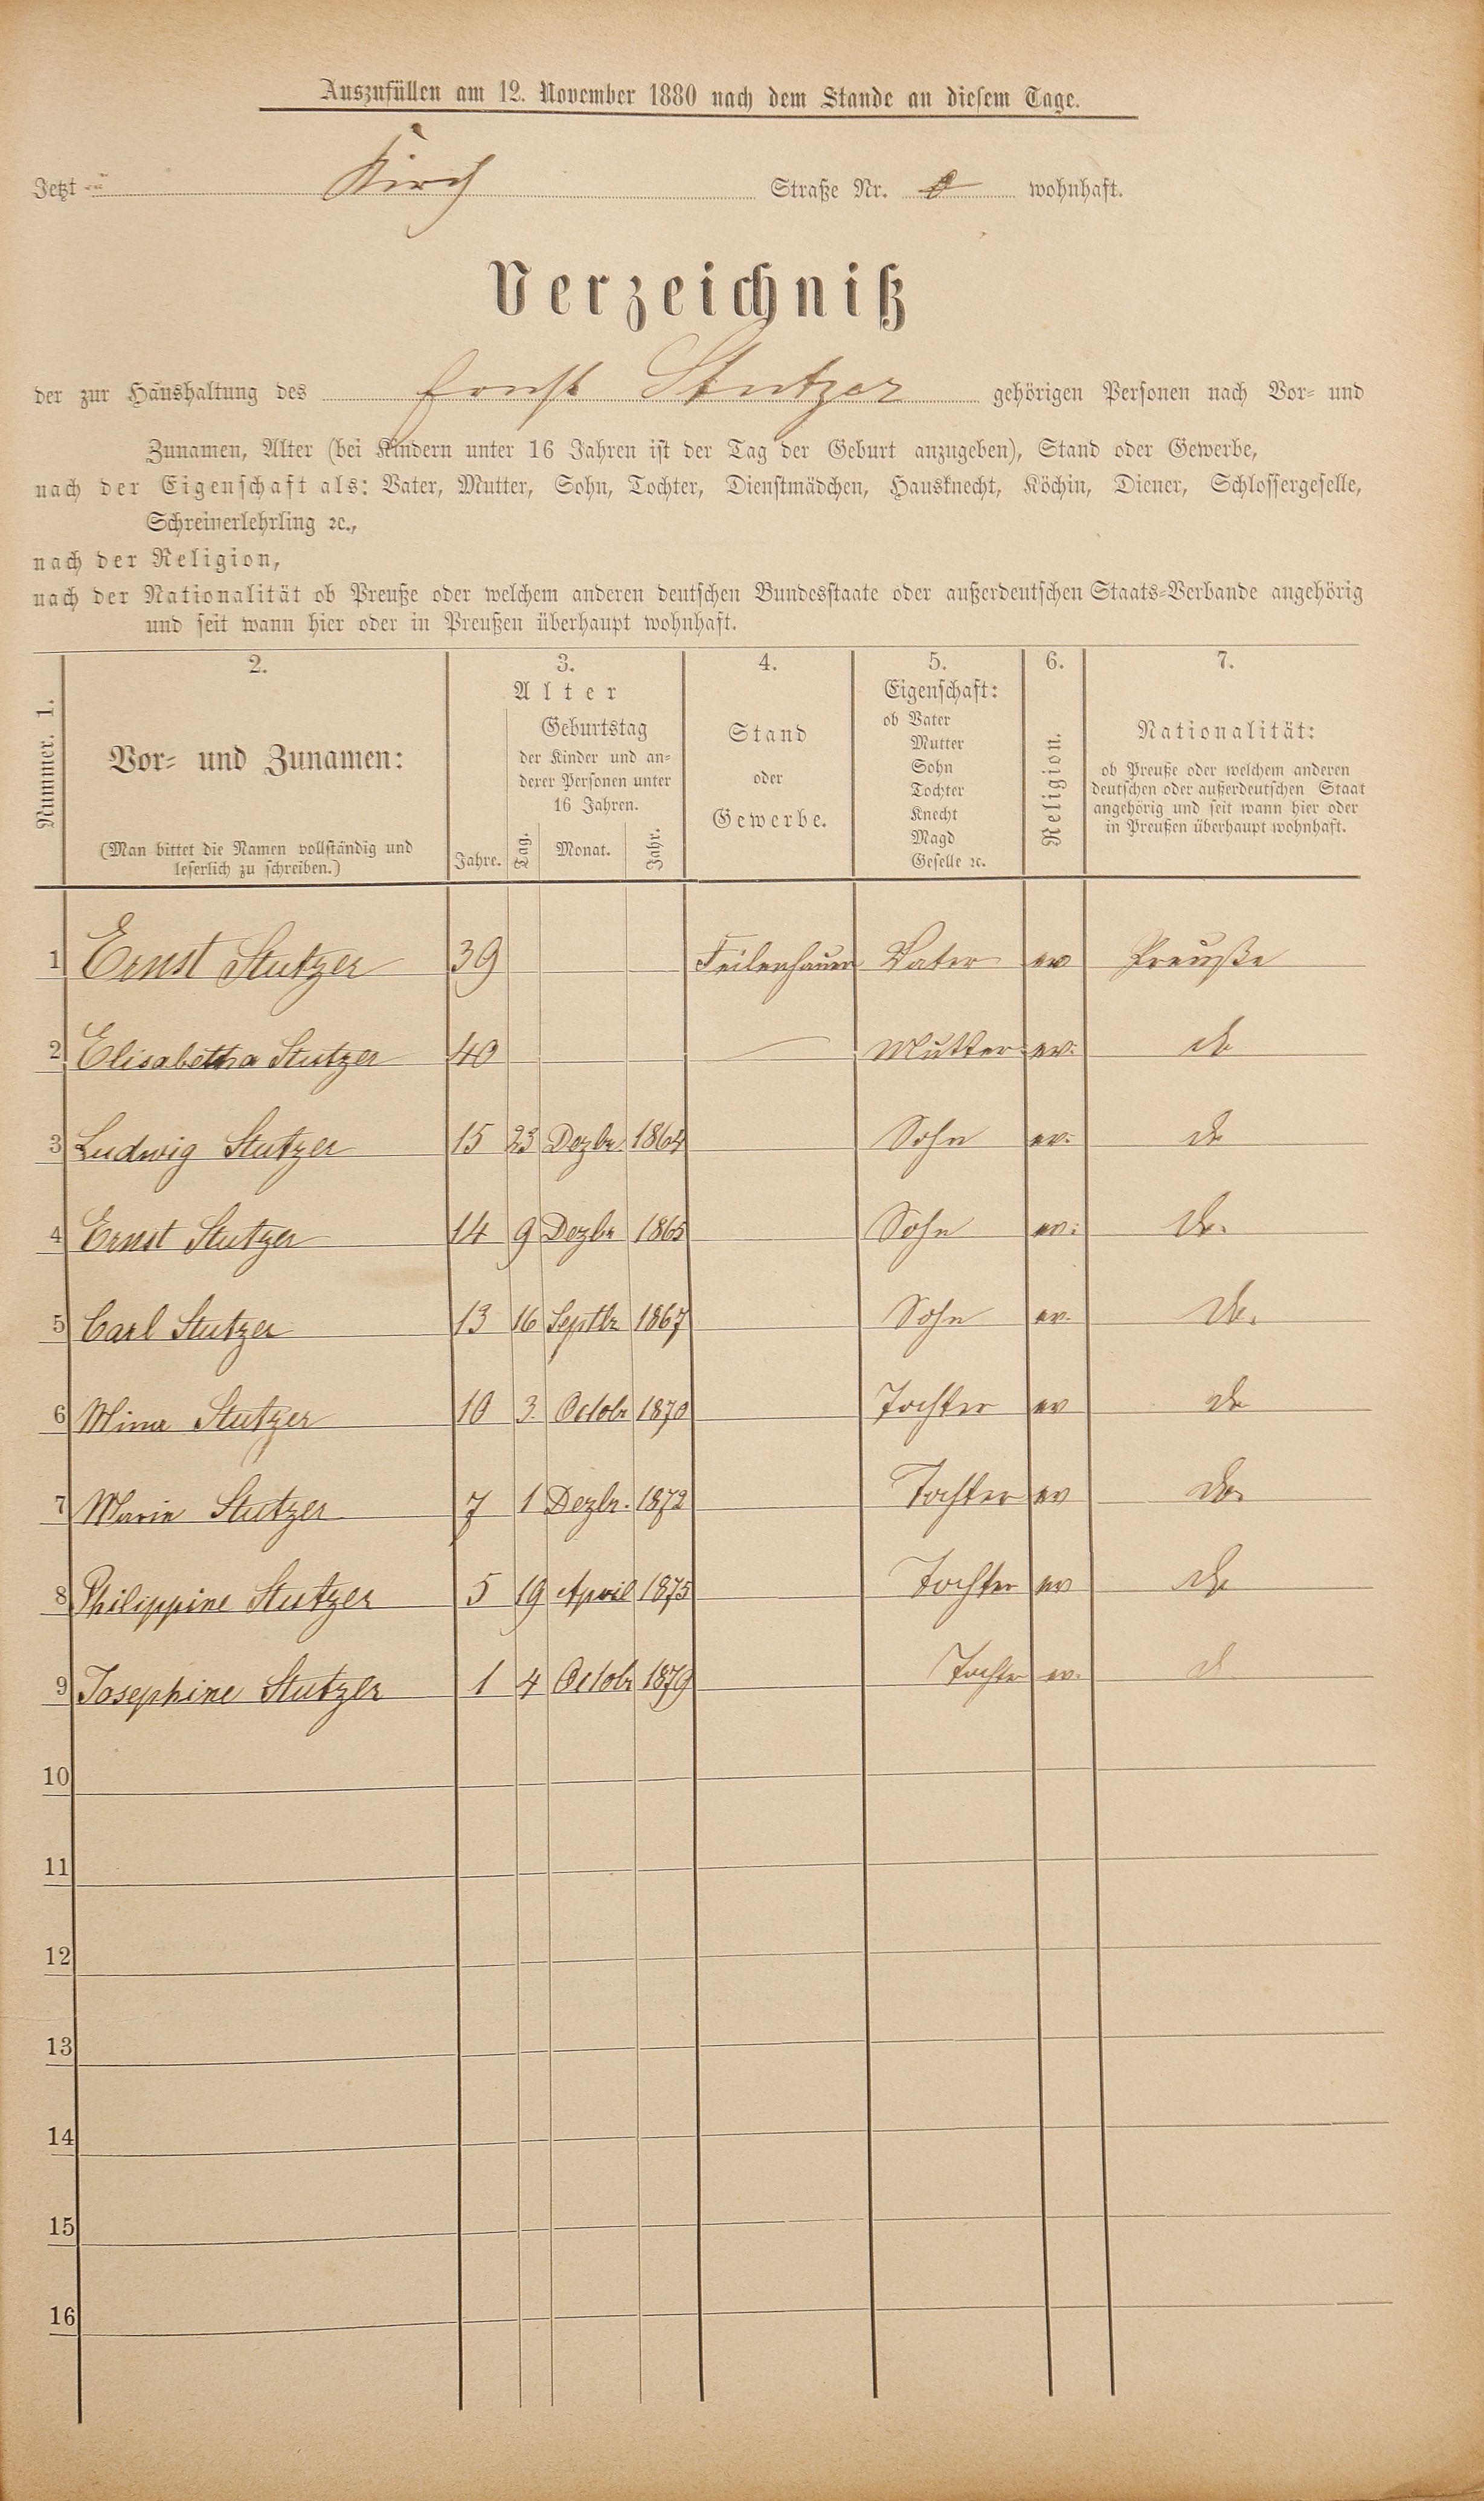 Auszufüllen am 12. November 1880 nach dem Stande an diesem Tage.
Jetzt Kirch Straße Nr. wohnhaft.
Verzeichniß
der zur Haushaltung des Ernst Stutzer gehörigen Personen nach Vor- und
Zunamen, Alter (bei Kindern unter 16 Jahren ist der Tag der Geburt anzugeben), Stand oder Gewerbe,
nach der Eigenschaft als: Vater, Mutter, Sohn, Tochter, Dienstmädchen, Hausknecht, Köchin, Diener, Schlossergeselle,
Schreinerlehrling ꝛc.,
nach der Religion,
nach der Nationalität ob Preuße oder welchem anderen deutschen Bundesstaate oder außerdeutschen Staats-Verbande angehörig
und seit wann hier oder in Preußen überhaupt wohnhaft.
Nummer. 1.
2.
Vor- und Zunamen:
(Man bittet die Namen vollständig und
leserlich zu schreiben.)
3.
Alter
Jahre.
Geburtstag
der Kinder und an-
derer Personen unter
16 Jahren.
Tag. Monat. Jahr.
4.
Stand
oder
Gewerbe.
5.
Eigenschaft:
ob Vater
Mutter
Sohn
Tochter
Knecht
Magd
Geselle ꝛc.
6.
Religion.
7.
Nationalität:
ob Preuße oder welchem anderen
deutschen oder außerdeutschen Staat
angehörig und seit wann hier oder
in Preußen überhaupt wohnhaft.
1 Ernst Stutzer 39 Feilenhauer Vater ev Preuße
2 Elisabetha Stutzer 40 Mutter ev. do
3 Ludwig Stutzer 15 23 Dezbr. 1864 Sohn ev. do
4 Ernst Stutzer 14 9 Dezbr 1865 Sohn ev. do.
5 Carl Stutzer 13 16 Septbr 1867 Sohn ev. do.
6 Mina Stutzer 10 3. Octobr 1870 Tochter ev do
7 Marie Stutzer 7 1 Dezbr. 1872 Tochter ev do.
8 Philippine Stutzer 5 19 April 1875 Tochter ev do
9 Josephine Stutzer 1 4 Octobr 1879 Tochter ev. do
10
11
12
13
14
15
16